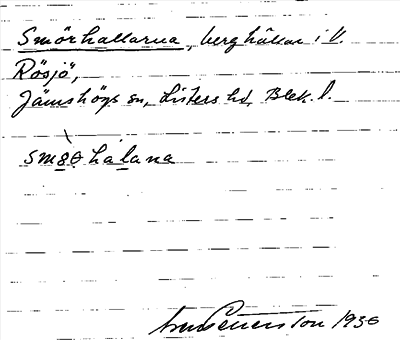 Smörhallarna, berghällar i V.
Rösjö,
Jämshögs sn, Listers hd, Blek. l.
sm8̀ɵ halana
1936